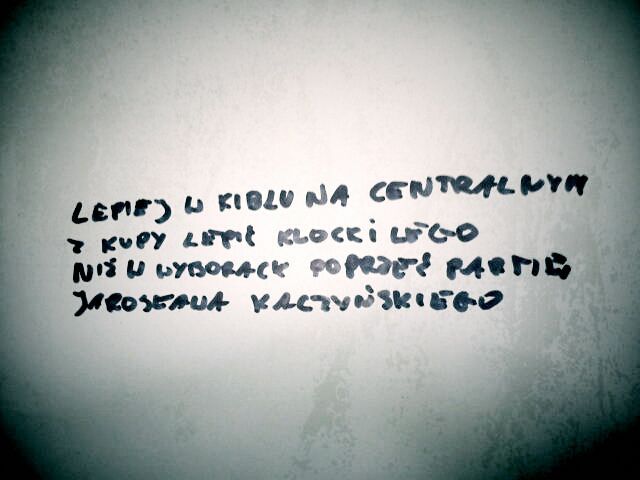 LEPIEJ W KIBLU NA CENTRALNYM
Z KUPY LEPIĆ KLOCKI LEGO
NIŻ W WYBORACH POPRZEĆ PARTIĘ
JAROSŁAWA KACZYŃSKIEGO